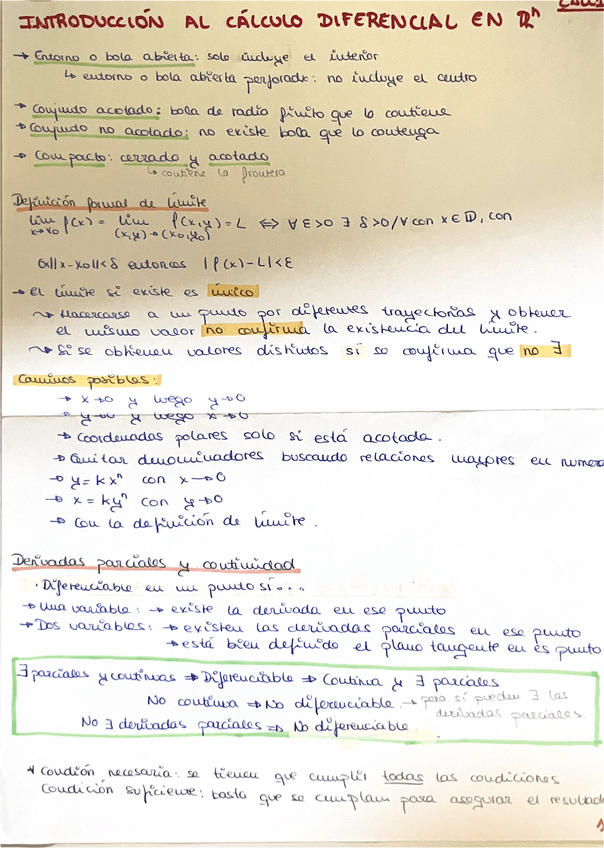 INTRODUCCIÓN AL CÁLCULO DIFERENCIAL EN ℝⁿ
→ Entorno o bola abierta: solo incluye el interior
↳ entorno o bola abierta perforado: no incluye el centro
→ Conjunto acotado: bola de radio finito que lo contiene
→ Conjunto no acotado: no existe bola que lo contenga
→ Compacto: cerrado y acotado
↳ contiene la frontera
Definición formal de límite
lim x→x₀ f(x) = lim (x,y)→(x₀,y₀) f(x,y) = L ⇔ ∀ ε>0 ∃ δ>0/∀ con x ∈ D, con
0<||x-x₀||<δ entonces |f(x)-L|<ε
→ El límite si existe es único
↝ Hacercarse a un punto por diferentes trayectorias y obtener
el mismo valor no confirma la existencia del límite.
↝ Si se obtienen valores distintos sí se confirma que no ∃
Caminos posibles:
→ x→0 y luego y→0
→ y→0 y luego x→0
→ Coordenadas polares solo si está acotada.
→ Quitar denominadores buscando relaciones mayores en numera
→ y=kxⁿ con x→0
→ x=kyⁿ con y→0
→ Con la definición de límite.
Derivadas parciales y continuidad
· Diferenciable en un punto si...
→ Una variable: → existe la derivada en ese punto
→ Dos variables: → existen las derivadas parciales en ese punto
→ está bien definido el plano tangente en es punto
∃ parciales y continuas ⇒ Diferenciable ⇒ Continua y ∃ parciales
No continua ⇒ No diferenciable → pero sí pueden ∃ las
derivadas parciales.
No ∃ derivadas parciales ⇒ No diferenciable
* Condión necesaria: se tienen que cumplir todas las condiciones
Condición suficiente: basta que se cumplan para asegurar el resultad
1